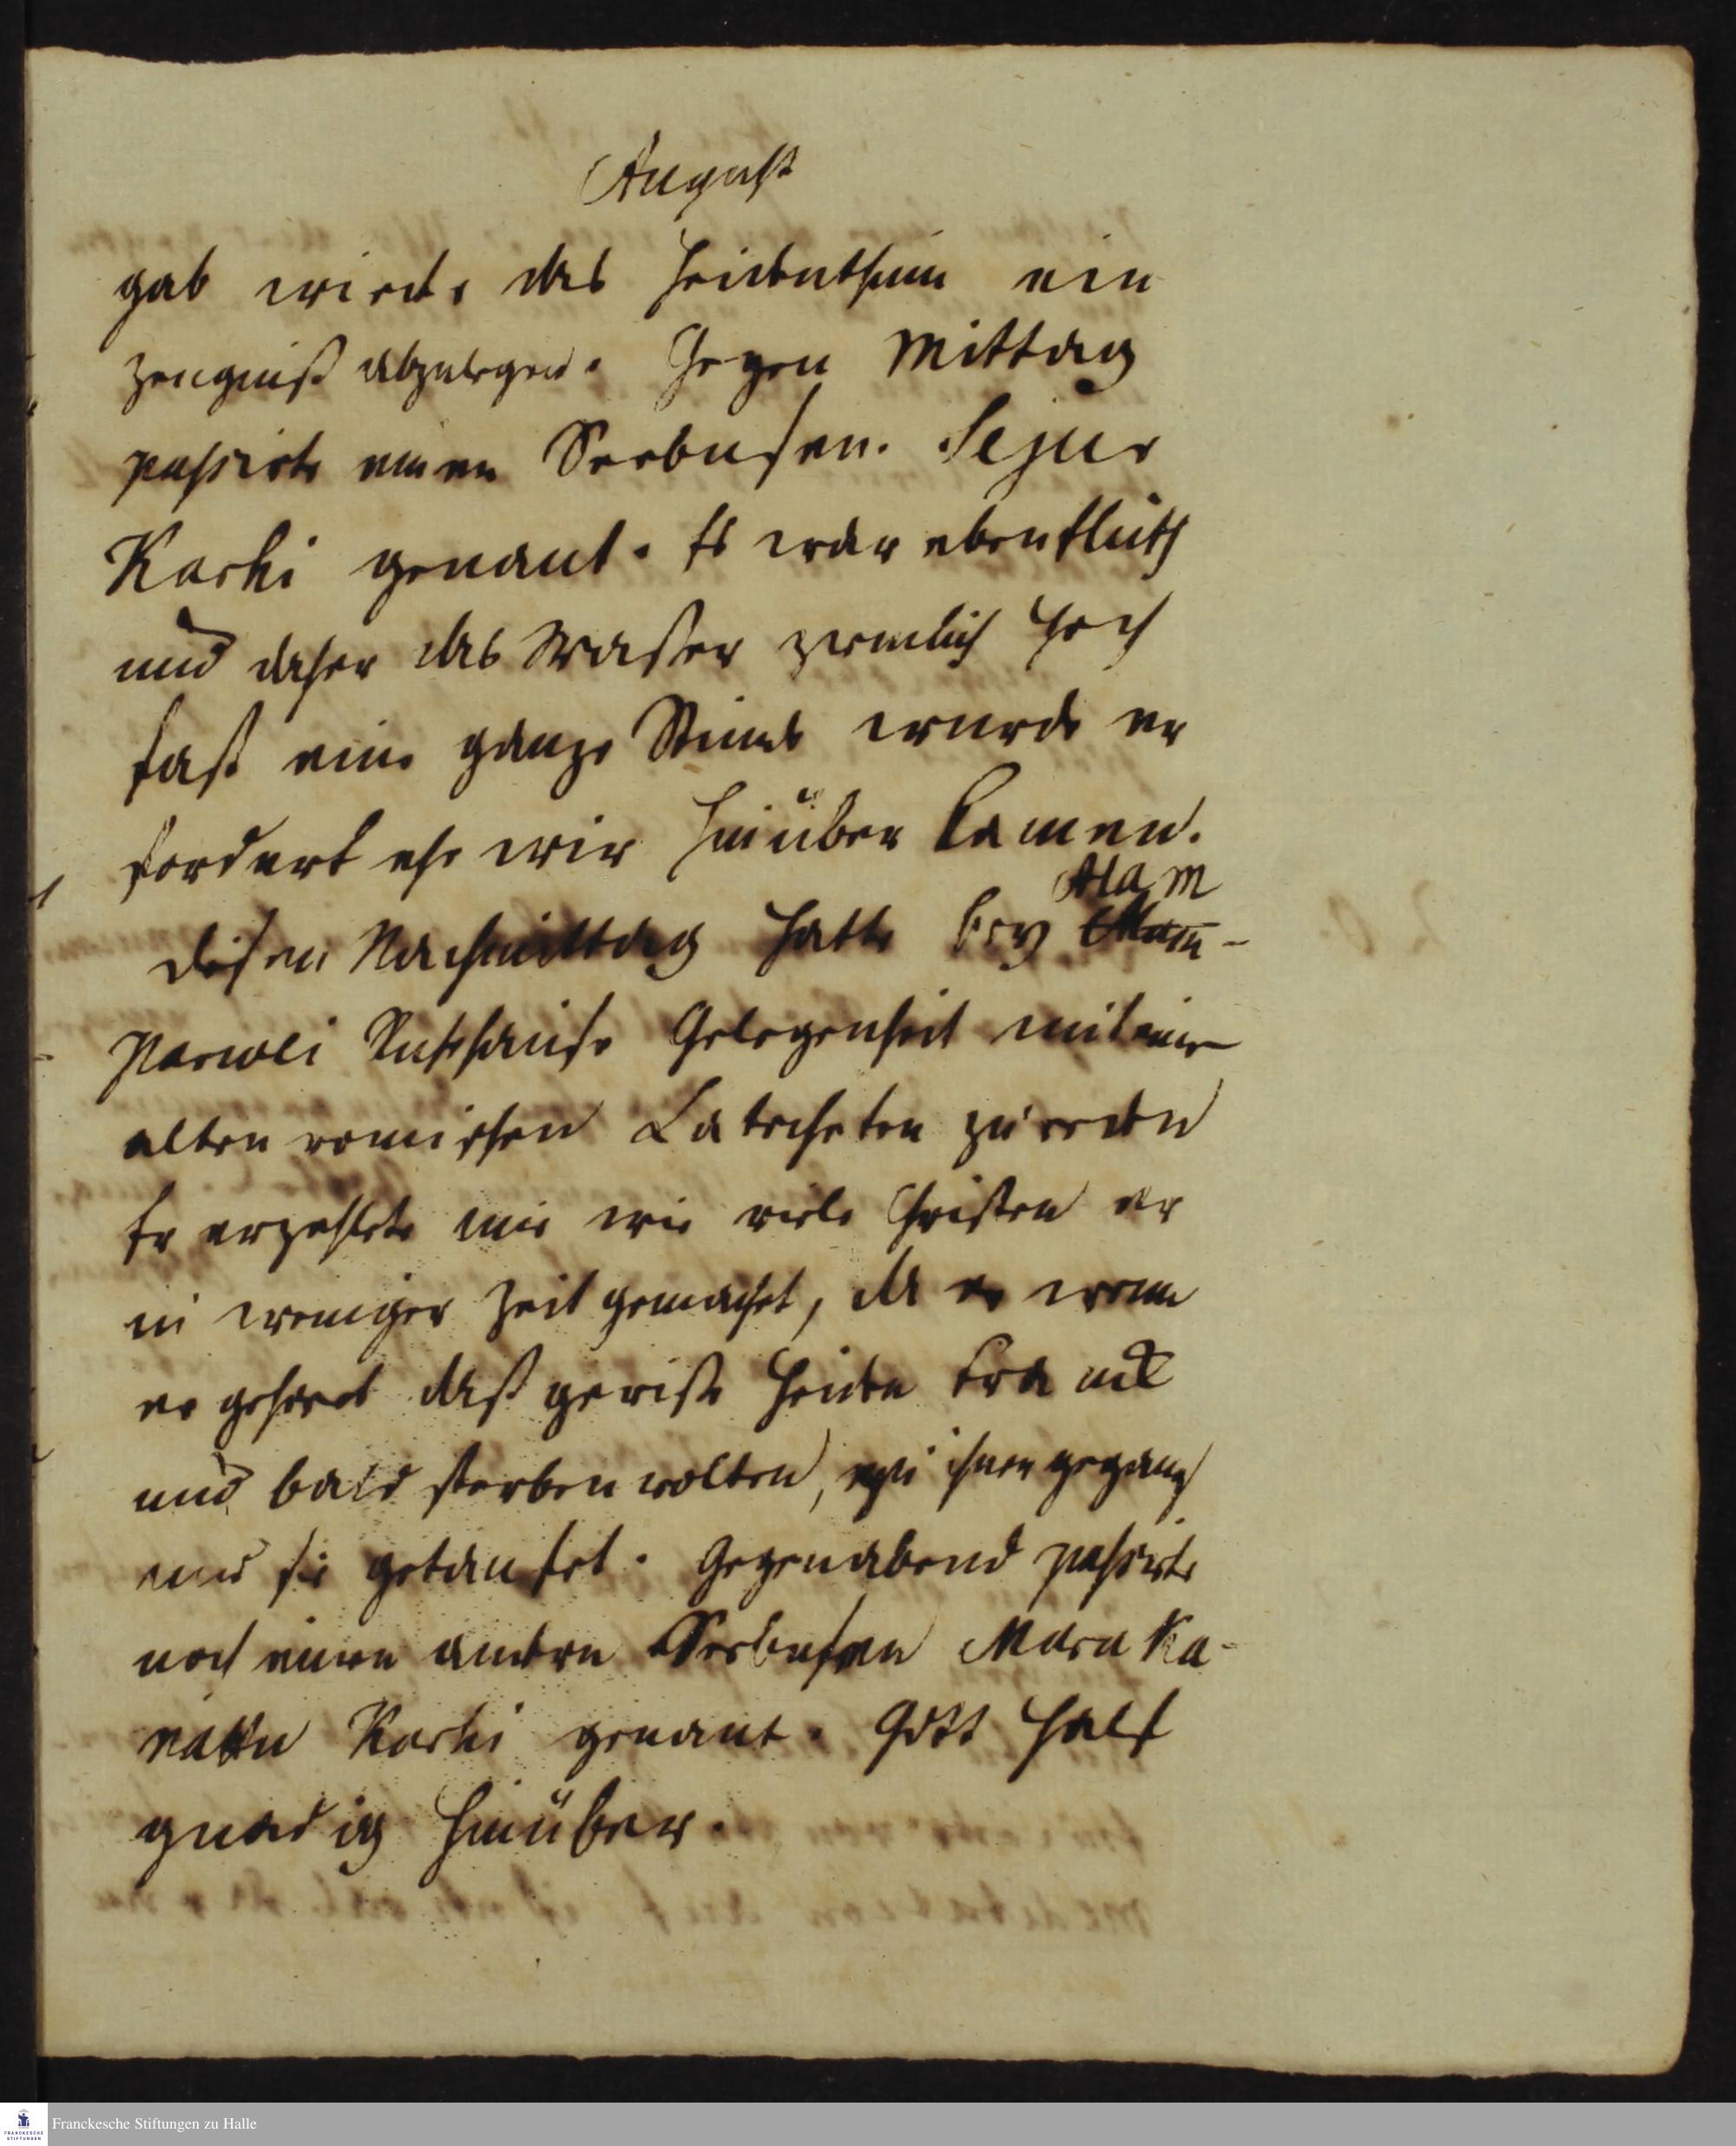 August
gab wieder das Heidenthum ein
Zeugniß abzulegen. Gegen Mittag
passirte einen Seebusen. Sejur
Karhi genant. Es war eben fluth
und daher das Waßer zemlich hoch
fast eine ganze Stunde wurde er
fordert ehe wir hinüber kamen.
Alam
diesen Nachmittag hatte bey
Parwei Ruhehause Gelegenheit mit ein
alten romischen Catecheten zu reden
Er erzehlete mir wie viele Christen er
in weniger Zeit gemacht, da er wenn
er gehoret daß gewiße Heiden kranck
und bald sterben wolten, zu ihnen gegang
und sie getaufet. Gegen abend passirte
noch einen andern Seebusen Mara Ka-
nattu Karhi genant. Gott half
gnadig hinüber.
Franckesche Stiftungen zu Halle
FRANCKESCHE
STIFTUNGEN